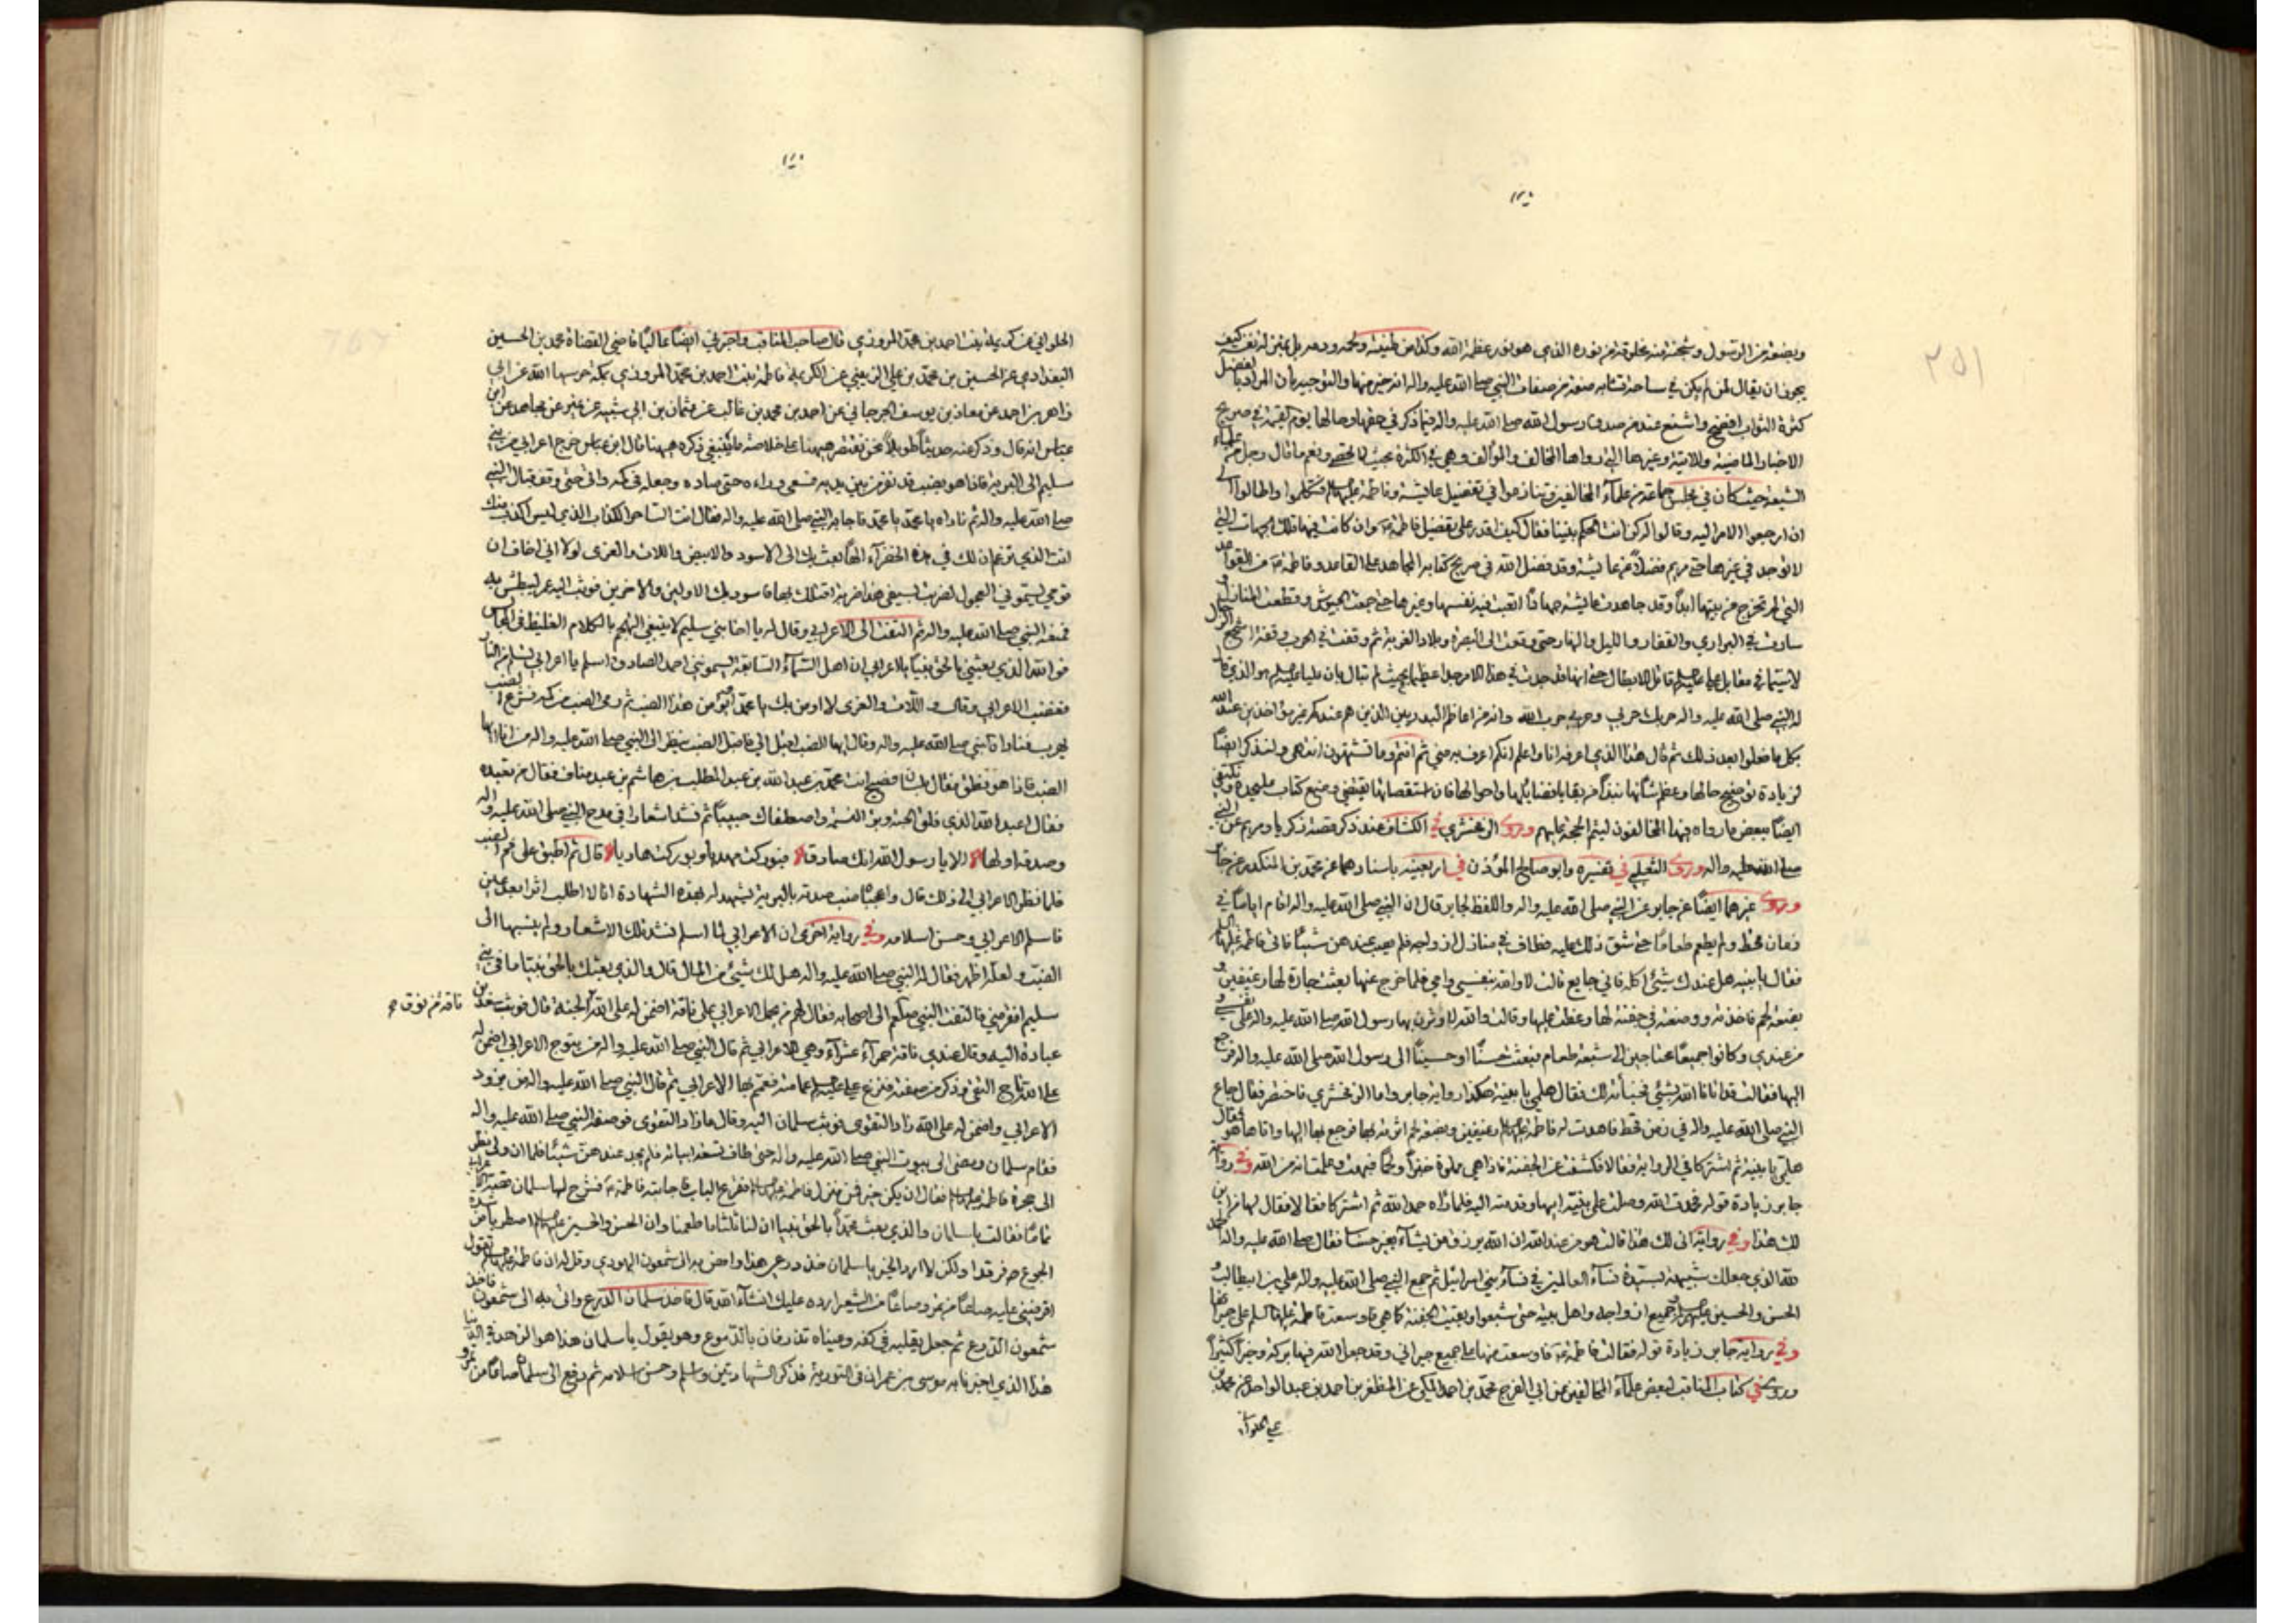 ٢٥١
وبضعة من الرسول وشجنة منه مخلوقة من نوره الذي هو نور عظمة الله وكذا من طينته ولحمه ودمه بل بمنزلة نفسه كيف
يجوز ان يقال لمن لم يكن في ساحة قتامه صفة من صفات النبي صلى الله عليه واله انه خير منها والتوجيه بان المراد بالفضل
كثرة الثواب افضح واشنع عند من صدق رسول الله صلى الله عليه واله فيما ذكر في حقها وحالها يوم القيمة في صريح
الاخبار الماضية والاتية وغيرها التي رواها المخالف والمؤالف وهي في الكثرة بحيث لا تحصى ونعم ما قال رجل من علماء
الشيعة حيث كان في مجلس جماعة من علماء المخالفين وتنازعوا في تفضيل عايشة وفاطمة عليها السلم فتكلموا واطالوا الى
ان ارجعوا الامر اليه وقالوا له كن انت الحكم بيننا فقال كيف اقدر على تفضيل فاطمة وان كانت فيها تلك الجهات التي
لا توجد في غيرها حتى مريم فضلا عن عايشة وقد فضل الله في صريح كتابه المجاهد على القاعد وفاطمة من القواعد
التي لم تخرج من بيتها ابدا وقد جاهدت عايشة جهادا اتعبت فيه نفسها وغيرها حتى جمعت الجيوش وقطعت المنازل و
سارت في البراري والقفار والليل والنهار حتى وقعت الى البصرة وبلاد الغربة ثم وقفت في الحرب وقفة اشجع الرجال
لاسيما في مقابل علي عليه السلم قاتل الابطال حتى انها قد جدت في هذا الامر جدا عظيما بحيث لم تبال بان عليا عليه السلم هو الذي قال
له النبي صلى الله عليه واله حربك حربي وحربي حرب الله وانه من اعاظم البدريين الذين هم عندكم غير مؤاخذين عند الله
بكل ما فعلوا بعد ذلك ثم قال هذا الذي اعرفه انا واعلم انكم اعرف به مني ثم انتم وما تشتهون انتهى ولنذكر ايضا
لزيادة توضيح حالها وعظم شأنها نبذا من بقايا فضايلها واحوالها فان استقصائها يقتضي وضع كتاب عليحدة ونكتفي
ايضا ببعض ما رواه فيها المخالفون ليتم الحجة عليهم وروى الزمخشري في الكشاف عند ذكر قصة زكريا ومريم عن النبي
صلى الله عليه واله وروى الثعلبي في تفسيره وابو صالح المؤذن في اربعينه باسنادهما عن محمد بن المنكدر عن جابر
وروى غيرهما ايضا عن جابر عن النبي صلى الله عليه واله واللفظ لجابر قال ان النبي صلى الله عليه واله اقام اياما في
زمان قحط ولم يطعم طعاما حتى شق ذلك عليه فطاف في منازل ازواجه فلم يصب عندهن شيئا فاتى فاطمة عليها السلم
فقال يا بنية هل عندك شيئ اكله فاني جايع قالت لا والله بنفسي وامي فلما خرج عنها بعثت جارة لها رغيفين و
بضعة لحم فاخذته ووضعته في جفنة لها وغطت عليها وقالت والله لاوثرن بها رسول الله صلى الله عليه واله على نفسي و
من عندي وكانوا جميعا محتاجين الى شبعة طعام فبعثت حسنا او حسينا الى رسول الله صلى الله عليه واله فرجع
اليها فقالت قد اتانا الله بشيئ فخبأته لك فقال هلمي يا بنية هكذا رواية جابر واما الزمخشري فاختصر فقال جاع
النبي صلى الله عليه واله في زمن قحط فاهدت له فاطمة عليها السلم رغيفين وبضعة لحم اثرته بها فرجع بها اليها واتاها هو فقال
هلمي يا بنية ثم اشتركا في الرواية فقالا فكشفت عن الجفنة فاذا هي مملوة خبزا ولحما فبهتت وعلمت انه من الله وفي رواية
جابر زيادة قوله فحمدت الله وصلت على نبيه ابيها وقدمته اليه فلما راه حمد الله ثم اشتركا فقالا فقال لها من اين
لك هذا وفي رواية انى لك هذا قالت هو من عند الله ان الله يرزق من يشآء بغير حساب فقال صلى الله عليه واله الحمد
لله الذي جعلك شبيهة بسيدة نسآء العالمين في نسآء بني اسرائيل ثم جمع النبي صلى الله عليه واله علي بن ابيطالب و
الحسن والحسين عليهم السلم وجميع ازواجه واهل بيته حتى شبعوا وبقيت الجفنة كما هي فاوسعت فاطمة عليها السلم على جيرانها
وفي رواية جابر زيادة قوله فقالت فاطمة فاوسعت منها على جميع جيراني وقد جعل الله فيها بركة وخيرا كثيرا
وروى في كتاب المناقب لبعض علماء المخالفين عن ابي الفرج محمد بن احمد المكي عن المظفر بن احمد بن عبد الواحد عن محمد بن
علي الحلواني
الحلواني عن كريمة بنت احمد بن محمد المروزي قال صاحب المناقب واخبرني ايضا عاليا قاضي القضاة محمد بن الحسين
البغدادي عن الحسين بن محمد بن علي الزينبي عن الكريمة فاطمة بنت احمد بن محمد المروزي بمكة حرسها الله عن ابي
زاهر بن احمد عن معاذ بن يوسف الجرجاني عن احمد بن محمد بن غالب عن عثمان بن ابي شيبة عن نمير عن مجاهد عن ابن
عباس انه قال وذكر عنه حديثا طويلا نحن نقتصر هيهنا على خلاصة ما ينبغي ذكره هيهنا قال ابن عباس خرج اعرابي من بني
سليم الى البرية فاذا هو بضب قد نفر من بين يديه فسعى وراءه حتى صاده وجعله في كمه واتى حتى وقف قبال النبي
صلى الله عليه واله ثم ناداه يا محمد يا محمد فاجابه النبي صلى الله عليه واله فقال انت الساحر الكذاب الذي ليس اكذب منك
انت الذي تزعم ان لك في هذه الخضرآء الها بعث بك الى الاسود والابيض واللات والعزى لولا اني اخاف ان
قومي يسموني العجول لضربتك بسيفي هذا ضربة اقتلك بها فاسود بك الاولين والاخرين فوثب اليه عمر ليبطش به
فمنعه النبي صلى الله عليه واله ثم التفت الى الاعرابي وقال له يا اخا بني سليم لا ينبغي التهجم بالكلام الغليظ في المجالس
فوالله الذي بعثني بالحق نبيا يا اعرابي ان اهل السمآء السابعة يسمونني احمد الصادق اسلم يا اعرابي تسلم من النار
فغضب الاعرابي وقال واللات والعزى لا اومن بك يا محمد او يؤمن هذا الضب ثم رمى الضب من كمه فشرع الضب
يهرب فناداه النبي صلى الله عليه واله وقال ايها الضب اقبل الي فاقبل الضب ينظر الى النبي صلى الله عليه واله من انا ايها
الضب فاذا هو ينطق فقال بلسان فصيح انت محمد بن عبد الله بن عبد المطلب بن هاشم بن عبد مناف فقال من تعبده
فقال اعبد الله الذي فلق الحبة وبرئ النسمة واصطفاك حبيبا ثم نشد اشعارا في مدح النبي صلى الله عليه واله
وصدقه اولها الا يا رسول الله انك صادق فبوركت مهديا وبوركت هاديا قال ثم اطبق على فم الضب
فلما نظر الاعرابي الى ذلك قال واعجبا ضب صدته بالبرية يشهد له بهذه الشهادة انا لا اطلب اثرا بعد عين
فاسلم الاعرابي وحسن اسلامه وفي رواية اخرى ان الاعرابي لما اسلم نشد تلك الاشعار ولم ينسبها الى
الضب ولعله اظهر فقال له النبي صلى الله عليه واله هل لك شيئ من المال قال والذي بعثك بالحق نبيا ما في بني
سليم افقر مني فالتفت النبي صلعم الى اصحابه فقال لهم من يحمل الاعرابي على ناقة اضمن له على الله الجنة قال فوثب سعد بن
ناقة من نوق
عبادة اليه وقال عندي ناقة حمرآء عشرآء وهي للاعرابي ثم قال النبي صلى الله عليه واله من يتوج الاعرابي اضمن له
على الله تاج التقى وذكر من صفته فنزع علي عليه السلم عمامته فعمم بها الاعرابي ثم قال النبي صلى الله عليه واله من يزود
الاعرابي واضمن له على الله زاد التقوى فوثب سلمان اليه وقال ما زاد التقوى فوصفه النبي صلى الله عليه واله
فقام سلمان ومضى الى بيوت النبي صلى الله عليه واله حتى طاف تسعة ابياته فلم يجد عندهن شيئا فلما ان ولى نظر
الى حجرة فاطمة عليها السلم فقال ان يكن خير فمن منزل فاطمة عليها السلم فقرع الباب فاجابته فاطمة فشرح لها سلمان قصة الاعرابي
تماما فقالت يا سلمان والذي بعث محمدا بالحق نبيا ان لنا ثلثا ما طعمنا وان الحسن والحسين عليهما السلم اضطربا من شدة
الجوع ثم فرقدا ولكن لا ارد الخير يا سلمان خذ درعي هذا وامض به الى شمعون اليهودي وقل له ان فاطمة عليها السلم تقول
اقرضني عليه صاعا من تمر وصاعا من الشعير ارده عليك انشآء الله قال فاخذ سلمان الدرع واتى به الى شمعون فاخذ
شمعون الدرع ثم جعل يقلبه في كفه وعيناه تذرفان بالدموع وهو يقول يا سلمان هذا هو الزهد في الدنيا
هذا الذي اخبرنا به موسى بن عمران في التورية فذكر الشهادتين واسلم وحسن اسلامه ثم دفع الى سلمان صاعا من تمر و